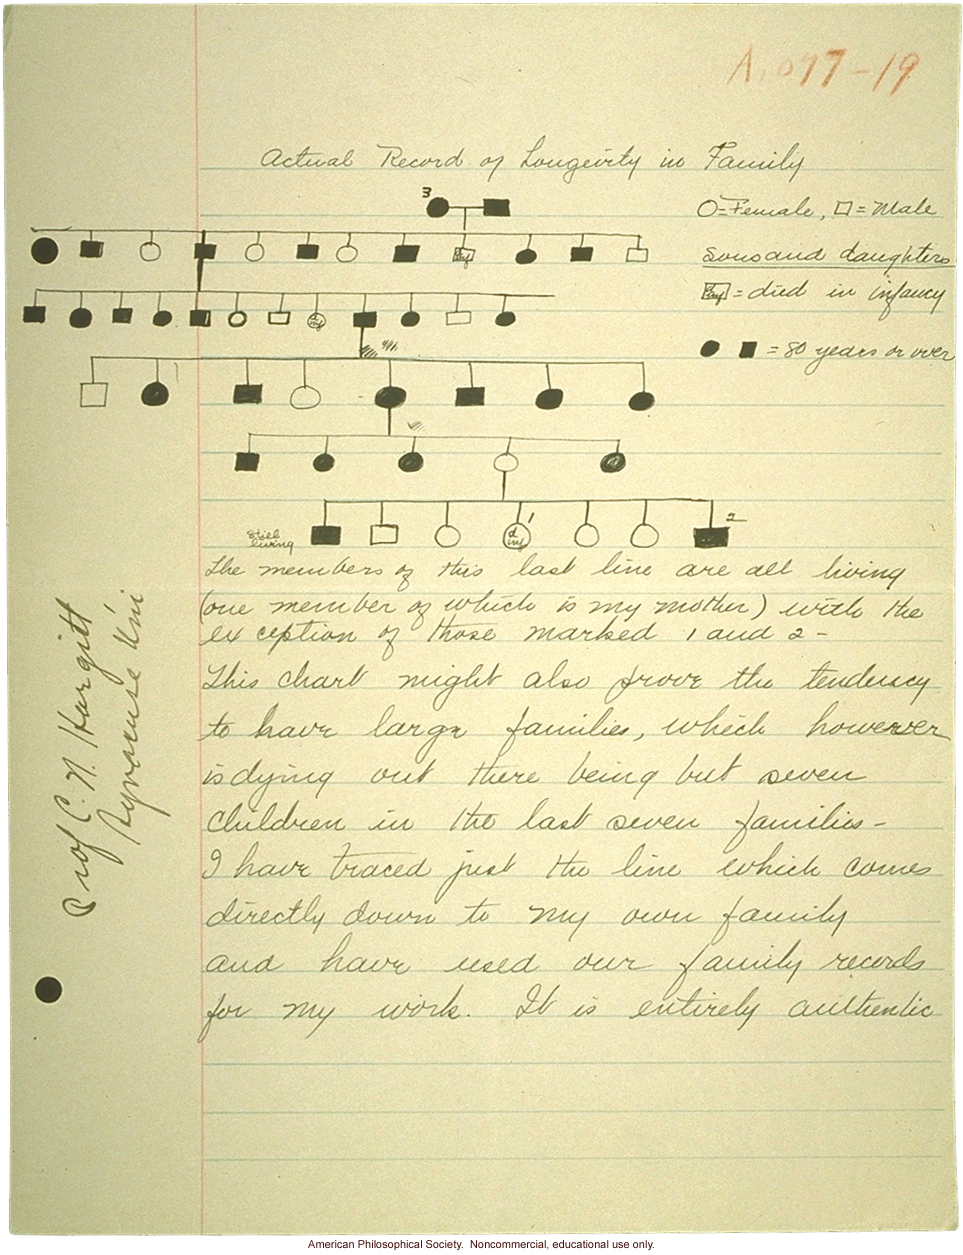 A.077-19
Actual Record of Longevity in Family
3
O=Female, □=Male
sons and daughters
inf = died in infancy
= 80 years or over
inf
d inf
still
living
d
inf
1
2
The members of this last line are all living
(one member of which is my mother) with the
exception of those marked 1 and 2-
This chart might also prove the tendency
to have large families, which however
is dying out there being but seven
children in the last seven families-
I have traced just the line which comes
directly down to my own family
and have used our family records
for my work. It is entirely authentic
Prof C. N. Hargitt
Syracuse Uni
American Philosophical Society. Noncommercial, educational use only.